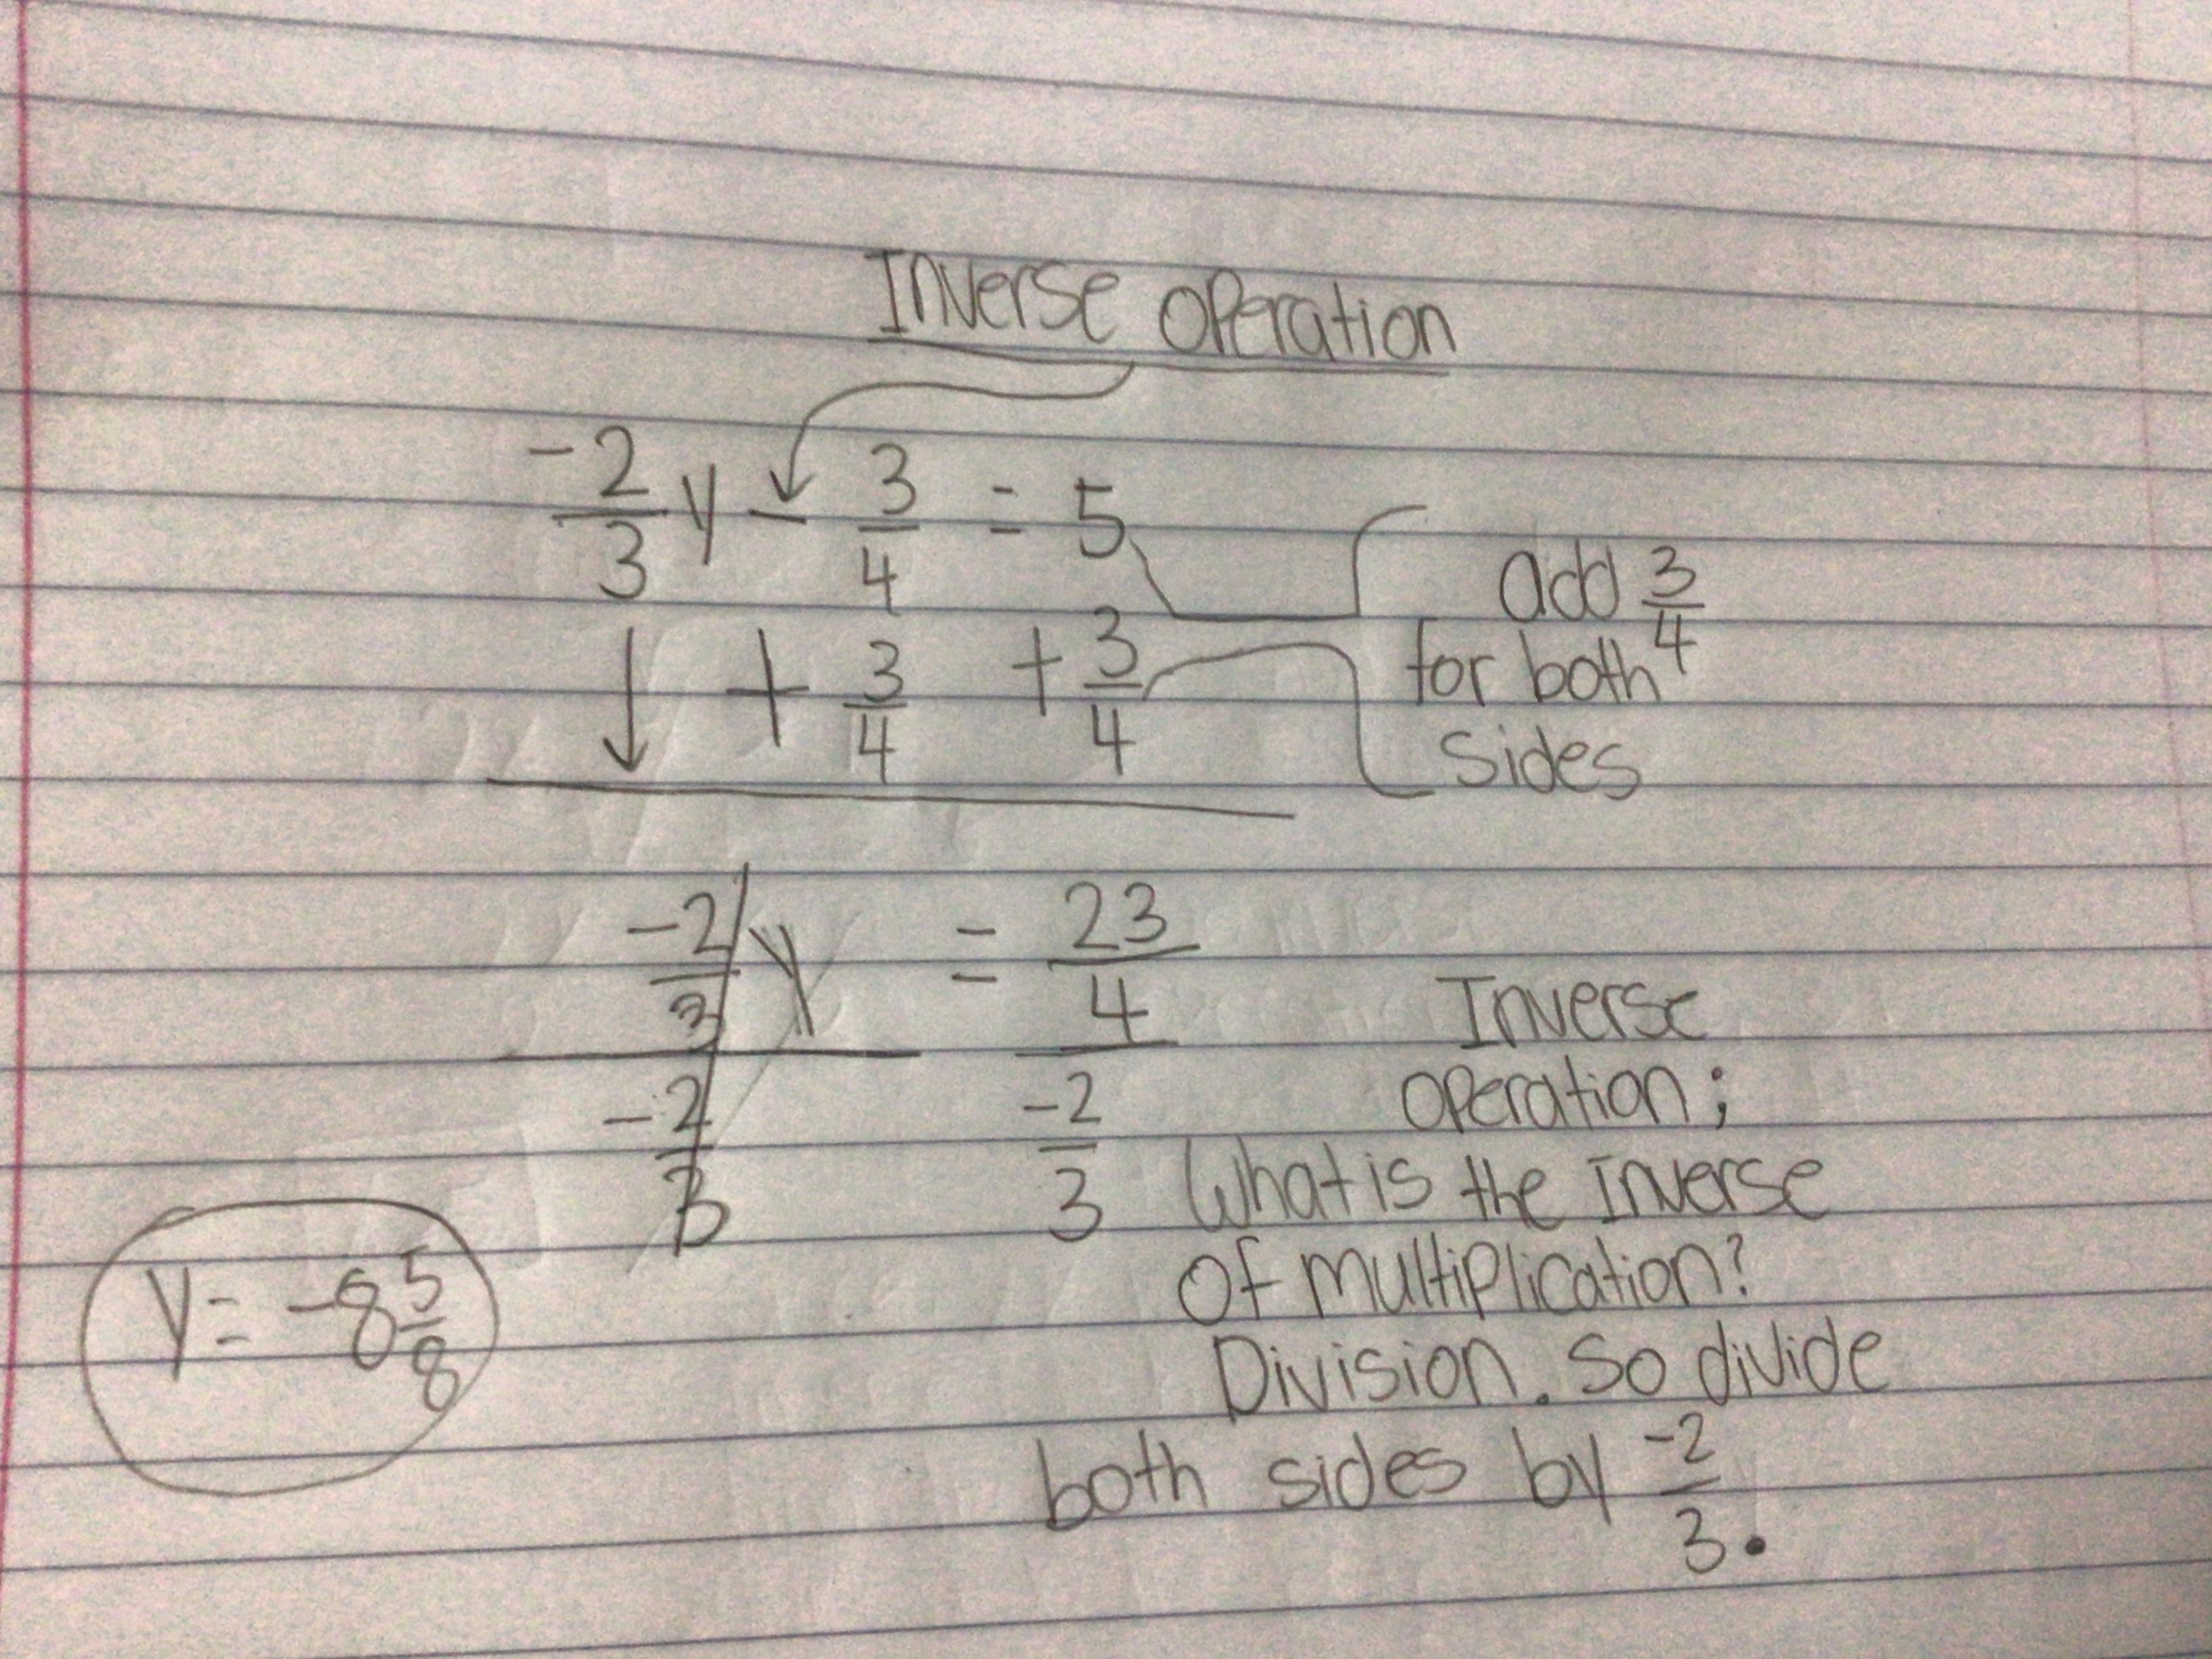 Inverse Operation
-2/3 y - 3/4 = 5
+ 3/4 + 3/4
add 3/4
for both
sides
-2/3 y = 23/4
-2/3 -2/3
Inverse
operation;
What is the inverse
of multiplication?
Division. So divide
both sides by -2/3.
y = -8 5/8